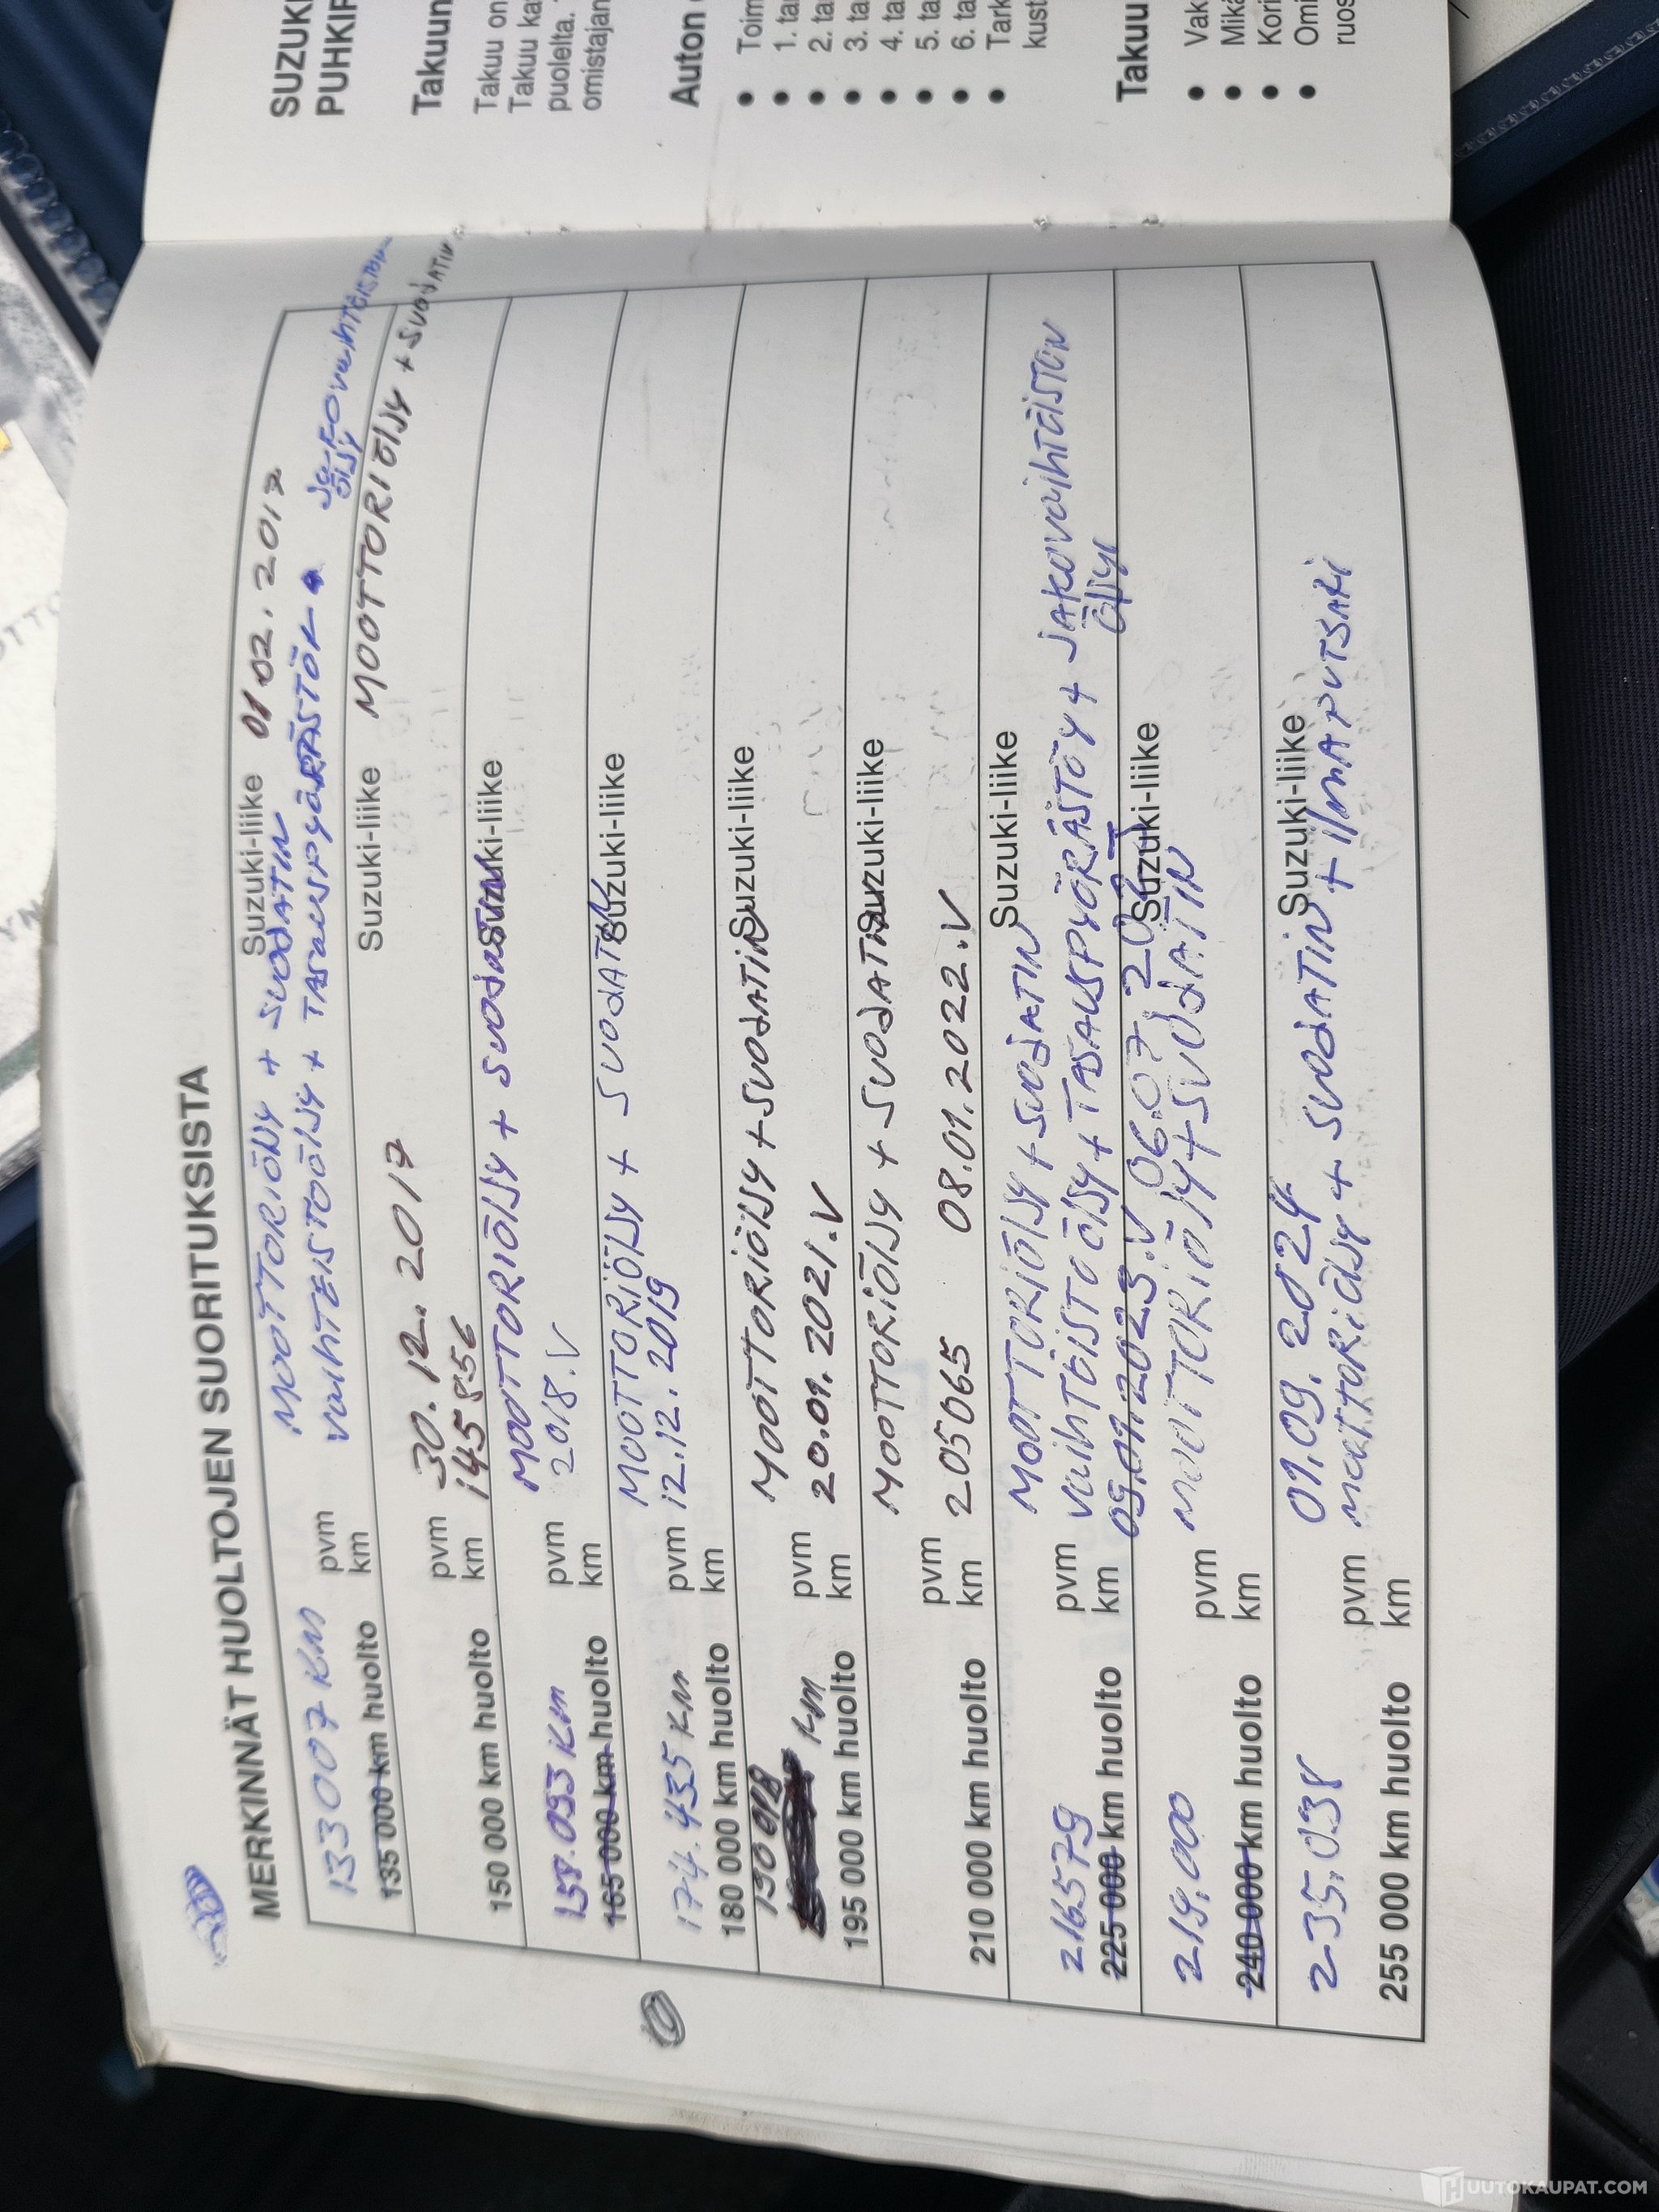 MERKINNÄT HUOLTOJEN SUORITUKSISTA
133007 KM
135 000 km huolto
pvm
km
Suzuki-liike 01.02.2017
MOOTTORIÖLJY + SUODATIN
VAIHTEISTOÖLJY + TASAUSPYÖRÄSTÖN + JAKOVAIHTEISTON
ÖLJY
150 000 km huolto
pvm 30.12.2017
km 145856
Suzuki-liike MOOTTORIÖLJY + SUODATIN
158.093 KM
165 000 km huolto
pvm
km
Suzuki-liike
MOOTTORIÖLJY + SUODATIN
2018.V
174.435 KM
180 000 km huolto
pvm 12.12.2019
km
Suzuki-liike
MOOTTORIÖLJY + SUODATIN
KM
195 000 km huolto
pvm 20.01.2021.V
km
Suzuki-liike
MOOTTORIÖLJY + SUODATIN
210 000 km huolto
pvm
km 205065 08.01.2022.V
Suzuki-liike
MOOTTORIÖLJY + SUODATIN
216579
225 000 km huolto
pvm
km
Suzuki-liike
MOOTTORIÖLJY + SUODATIN
VAIHTEISTOÖLJY + TASAUSPYÖRÄSTÖ + JAKOVAIHTEISTON
ÖLJY
09.01.2023.V
219.000
240 000 km huolto
pvm
km
Suzuki-liike
MOOTTORIÖLJY + SUODATIN
235.038
255 000 km huolto
pvm 01.09.2024
km
Suzuki-liike
MOOTTORIÖLJY + SUODATIN + ILMAPUTSARI
SUZUKI
Takuun
Takuu on
puolelta.
omistajan
Auton
1. ta
2. ta
3. ta
4. ta
5. ta
6. ta
Takuu
HUUTOKAUPAT.COM